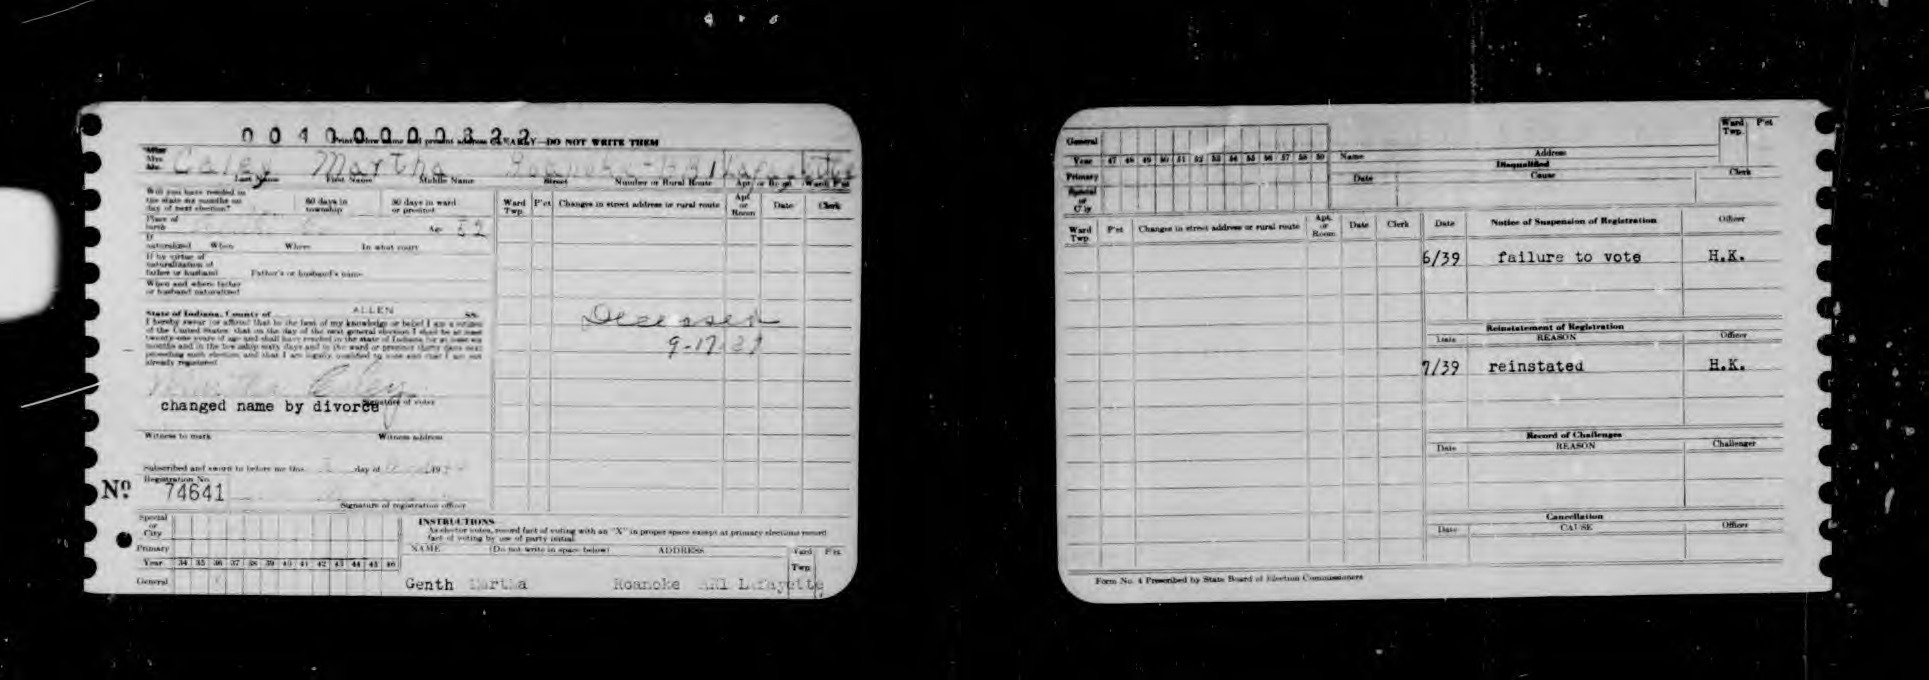 0040000322
Print below name and present address CLEARLY—DO NOT WRITE THEM
Miss
Mrs.
Mr.
Caley Martha Roanoke RR1 Lafayette
Last Name First Name Middle Name Street Number or Rural Route Apt. or Bg. Ward P'ct
Will you have resided in
the state six months on
day of next election?
60 days in
township
30 days in ward
or precinct
Place of
birth
Age 52
If
naturalized When Where In what court
If by virtue of
naturalization of
father or husband Father's or husband's name
When and where father
or husband naturalized
State of Indiana, County of ALLEN SS.
I hereby swear (or affirm) that to the best of my knowledge or belief I am a citizen
of the United States; that on the day of the next general election I shall be at least
twenty-one years of age and shall have resided in the state of Indiana for at least six
months and in the township sixty days and in the ward or precinct thirty days next
preceding such election; and that I am legally qualified to vote and that I am not
already registered.
Martha Caley
Signature of voter
changed name by divorce
Witness to mark Witness address
Subscribed and sworn to before me this day of 193
Registration No.
No. 74641
Signature of registration officer
Ward
Twp. P'ct Changes in street address or rural route Apt.
or
Room Date Clerk
Deceased
9-17-
Special
or
City
Primary
Year 34 35 36 37 38 39 40 41 42 43 44 45 46
General
INSTRUCTIONS
As elector votes, record fact of voting with an "X" in proper space except at primary elections record
fact of voting by use of party initial.
NAME (Do not write in space below) ADDRESS Ward
Twp. P'ct
Genth Martha Roanoke RR1 Lafayette
General
Year 47 48 49 50 51 52 53 54 55 56 57 58 59
Primary
Special
or
City
Name Address
Ward
Twp. P'ct
Disqualified
Date Cause Clerk
Ward
Twp. P'ct Changes in street address or rural route Apt.
or
Room Date Clerk
Date Notice of Suspension of Registration Officer
6/39 failure to vote H.K.
Reinstatement of Registration
Date REASON Officer
7/39 reinstated H.K.
Record of Challenges
Date REASON Challenger
Cancellation
Date CAUSE Officer
Form No. 4 Prescribed by State Board of Election Commissioners